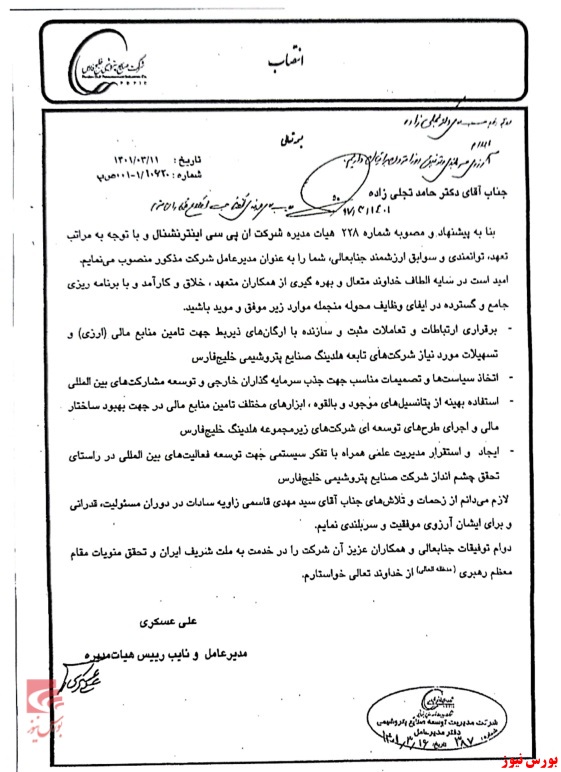 شرکت صنایع پتروشیمی خلیج فارس
انتصاب
بسمه تعالی
تاریخ : ۱۴۰۱/۰۳/۱۱
شماره : ۱۰۶۲۰/۱-۰۰۱ص‌پ
جناب آقای دکتر حامد تجلی زاده
بنا به پیشنهاد و مصوبه شماره ۲۲۸ هیات مدیره شرکت ان پی سی اینترنشنال و با توجه به مراتب
تعهد، توانمندی و سوابق ارزشمند جنابعالی، شما را به عنوان مدیرعامل شرکت مذکور منصوب می‌نمایم.
امید است در سایه الطاف خداوند متعال و بهره گیری از همکاران متعهد ، خلاق و کارآمد و با برنامه ریزی
جامع و گسترده در ایفای وظایف محوله منجمله موارد زیر موفق و موید باشید.
- برقراری ارتباطات و تعاملات مثبت و سازنده با ارگان‌های ذیربط جهت تامین منابع مالی (ارزی) و
تسهیلات مورد نیاز شرکت‌های تابعه هلدینگ صنایع پتروشیمی خلیج‌فارس
- اتخاذ سیاست‌ها و تصمیمات مناسب جهت جذب سرمایه گذاران خارجی و توسعه مشارکت‌های بین المللی
- استفاده بهینه از پتانسیل‌های موجود و بالقوه ، ابزارهای مختلف تامین منابع مالی در جهت بهبود ساختار
مالی و اجرای طرح‌های توسعه ای شرکت‌های زیرمجموعه هلدینگ خلیج‌فارس
- ایجاد و استقرار مدیریت علمی همراه با تفکر سیستمی جهت توسعه فعالیت‌های بین المللی در راستای
تحقق چشم انداز شرکت صنایع پتروشیمی خلیج‌فارس
لازم می‌دانم از زحمات و تلاش‌های جناب آقای سید مهدی قاسمی زاویه سادات در دوران مسئولیت، قدرانی
و برای ایشان آرزوی موفقیت و سربلندی نمایم.
دوام توفیقات جنابعالی و همکاران عزیز آن شرکت را در خدمت به ملت شریف ایران و تحقق منویات مقام
معظم رهبری (مدظله العالی) از خداوند تعالی خواستارم.
علی عسکری
مدیرعامل و نایب رییس هیات‌مدیره
شرکت مدیریت توسعه صنایع پتروشیمی
دفتر مدیرعامل
بورس نیوز
بورس نیوز